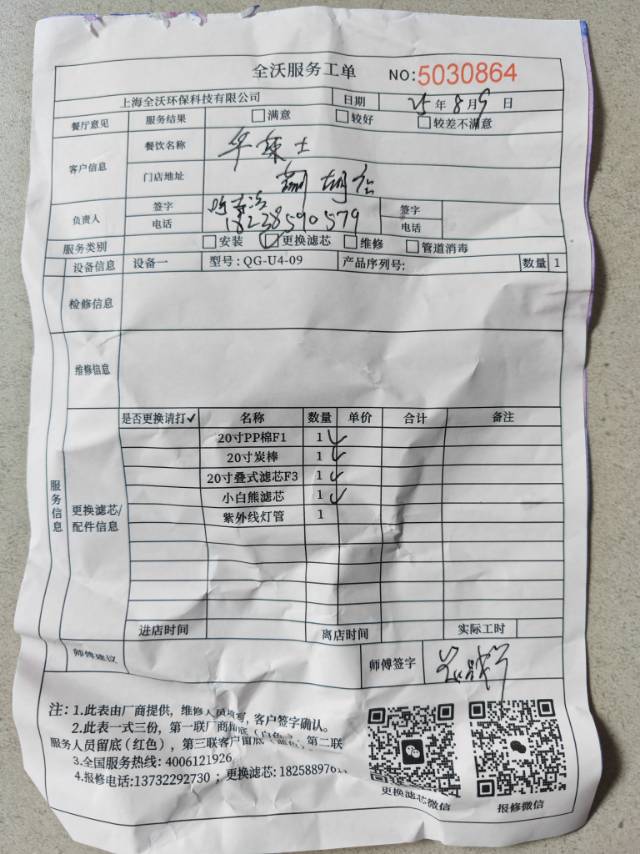 全沃服务工单 NO:5030864
上海全沃环保科技有限公司 日期 25 年 8 月 9 日
餐厅意见 服务结果 □满意 □较好 □较差不满意
客户信息 餐饮名称 华莱士
门店地址
负责人 签字 签字
电话 18238590579 电话
服务类别 □安装 ☑更换滤芯 □维修 □管道消毒
设备信息 设备一 型号:QG-U4-09 产品序列号: 数量 1
检修信息
维修信息
服务信息
更换滤芯/配件信息
是否更换请打✓ 名称 数量 单价 合计 备注
20寸PP棉F1 1 ✓
20寸炭棒 1 ✓
20寸叠式滤芯F3 1 ✓
小白熊滤芯 1 ✓
紫外线灯管 1
进店时间 离店时间 实际工时
师傅建议 师傅签字
注:1.此表由厂商提供,维修人员填写,客户签字确认。
2.此表一式三份,第一联厂商留底(白色),第二联
服务人员留底(红色),第三联客户留底
3.全国服务热线:4006121926
4.报修电话:13732292730;更换滤芯:1825889761
更换滤芯微信 报修微信